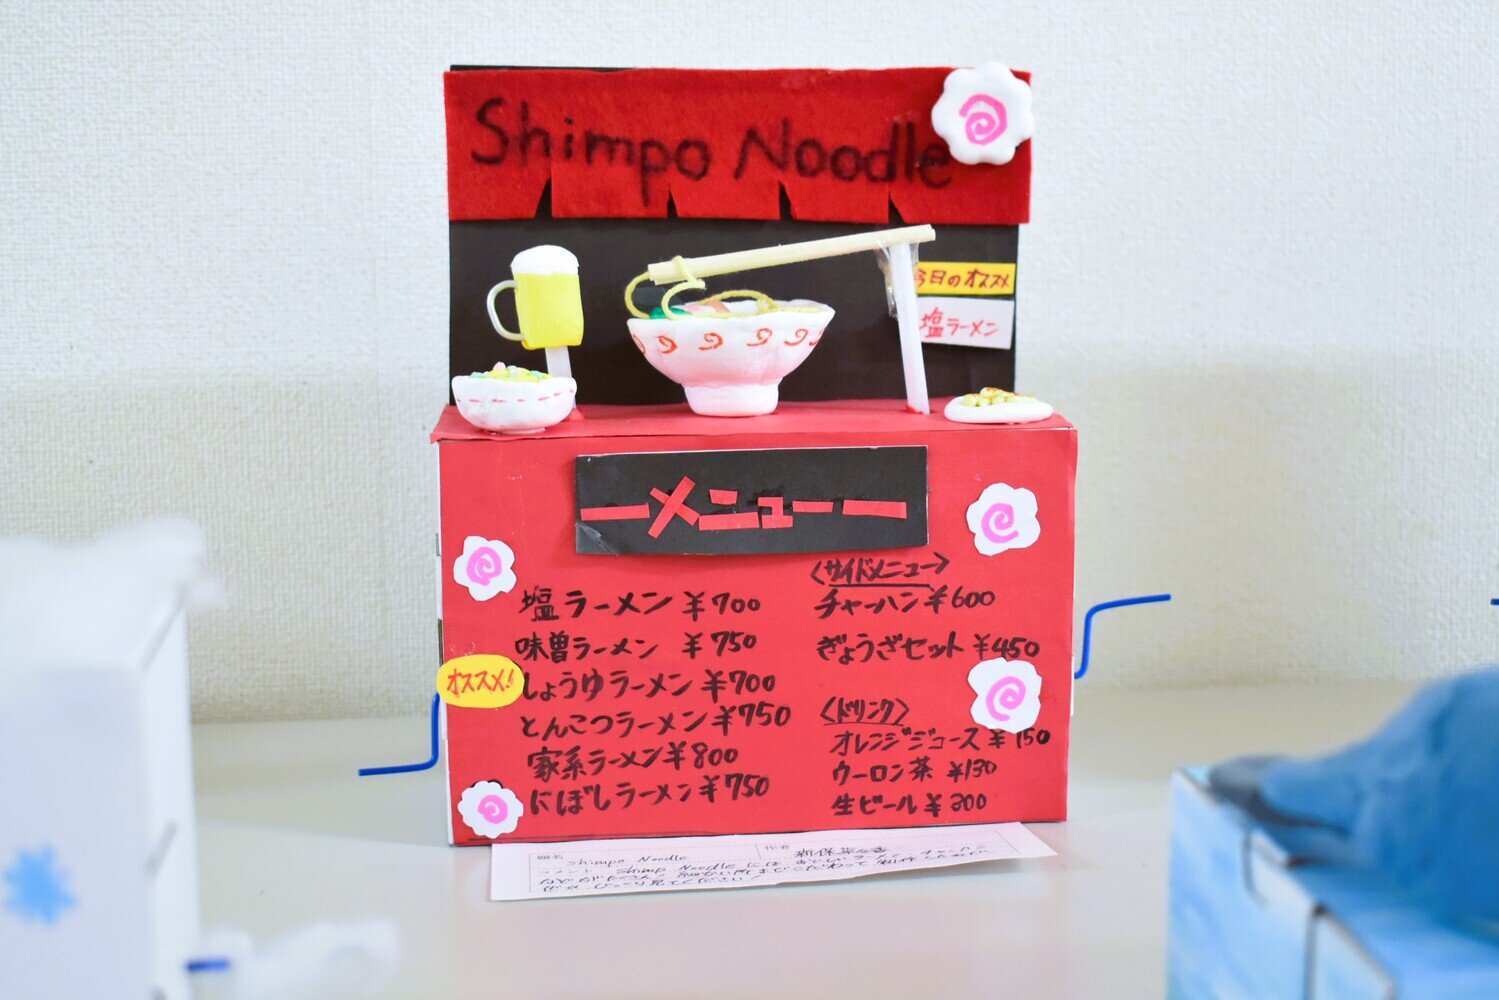 Shimpo Noodle
今日のオススメ
塩ラーメン
メニュー
塩ラーメン ¥700
味曽ラーメン ¥750
オススメ!
しょうゆラーメン ¥700
とんこつラーメン ¥750
家系ラーメン ¥800
にぼしラーメン ¥750
<サイドメニュー>
チャーハン ¥600
ぎょうざセット ¥450
<ドリンク>
オレンジジュース ¥150
ウーロン茶 ¥130
生ビール ¥300
題名 Shimpo Noodle
作者
コメント Shimpo Noodle